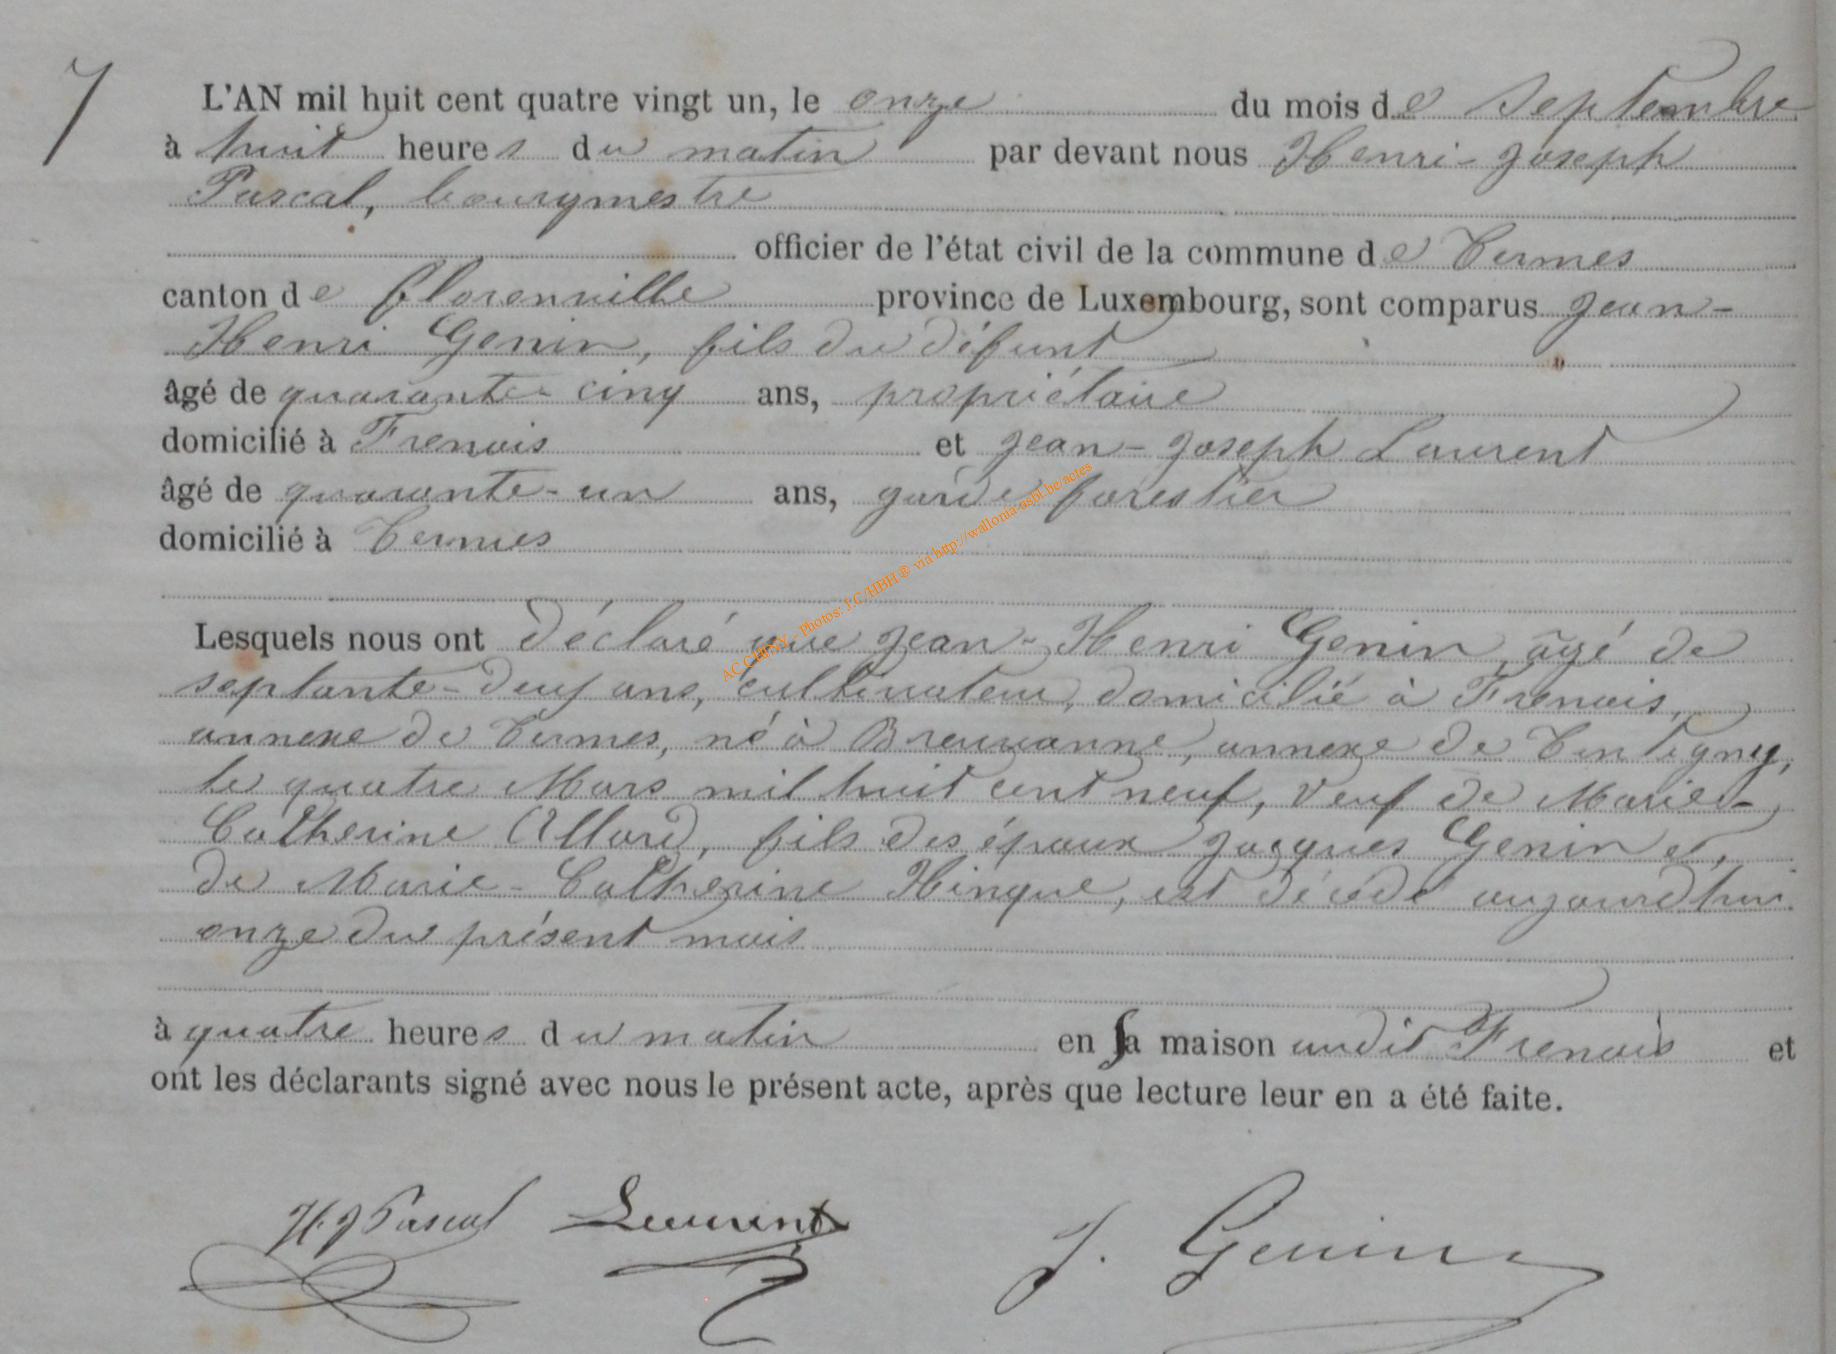 7
L'AN mil huit cent quatre vingt un, le onze du mois de Septembre
à huit heures du matin par devant nous Henri-Joseph
Pascal, bourgmestre
officier de l'état civil de la commune de Termes
canton de Florenville province de Luxembourg, sont comparus Jean-
Henri Genin, fils du défunt
âgé de quarante-cinq ans, propriétaire
domicilié à Frenois et Jean-Joseph Laurent
âgé de quarante-un ans, garde forestier
domicilié à Termes
AC CHINY - Photos: J.C/HBH® via http://wallonia-asbl.be/actes
Lesquels nous ont déclaré que Jean-Henri Genin, âgé de
septante-deux ans, cultivateur, domicilié à Frenois,
annexe de Termes, né à Breuvanne, annexe de Tintigny,
le quatre Mars mil huit cent neuf, veuf de Marie-
Catherine Allard, fils des époux Jacques Genin et
de Marie-Catherine Hinque, est décédé aujourd'hui
onze du présent mois
à quatre heures du matin en sa maison audit Frenois et
ont les déclarants signé avec nous le présent acte, après que lecture leur en a été faite.
HJ Pascal Laurent J. Genin